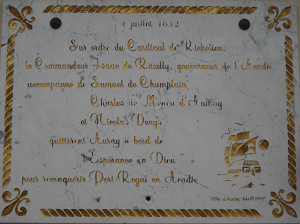 4 juillet 1632
Sur ordre du Cardinal de Richelieu,
le Commandeur Isaac de Razilly, gouverneur de l'Acadie
accompagné de Samuel de Champlain
Charles de Menou d'Aulnay
et Nicolas Denys,
quittèrent Auray à bord de
l'Espérance en Dieu
pour reconquérir Port Royal en Acadie
Ville d'Auray